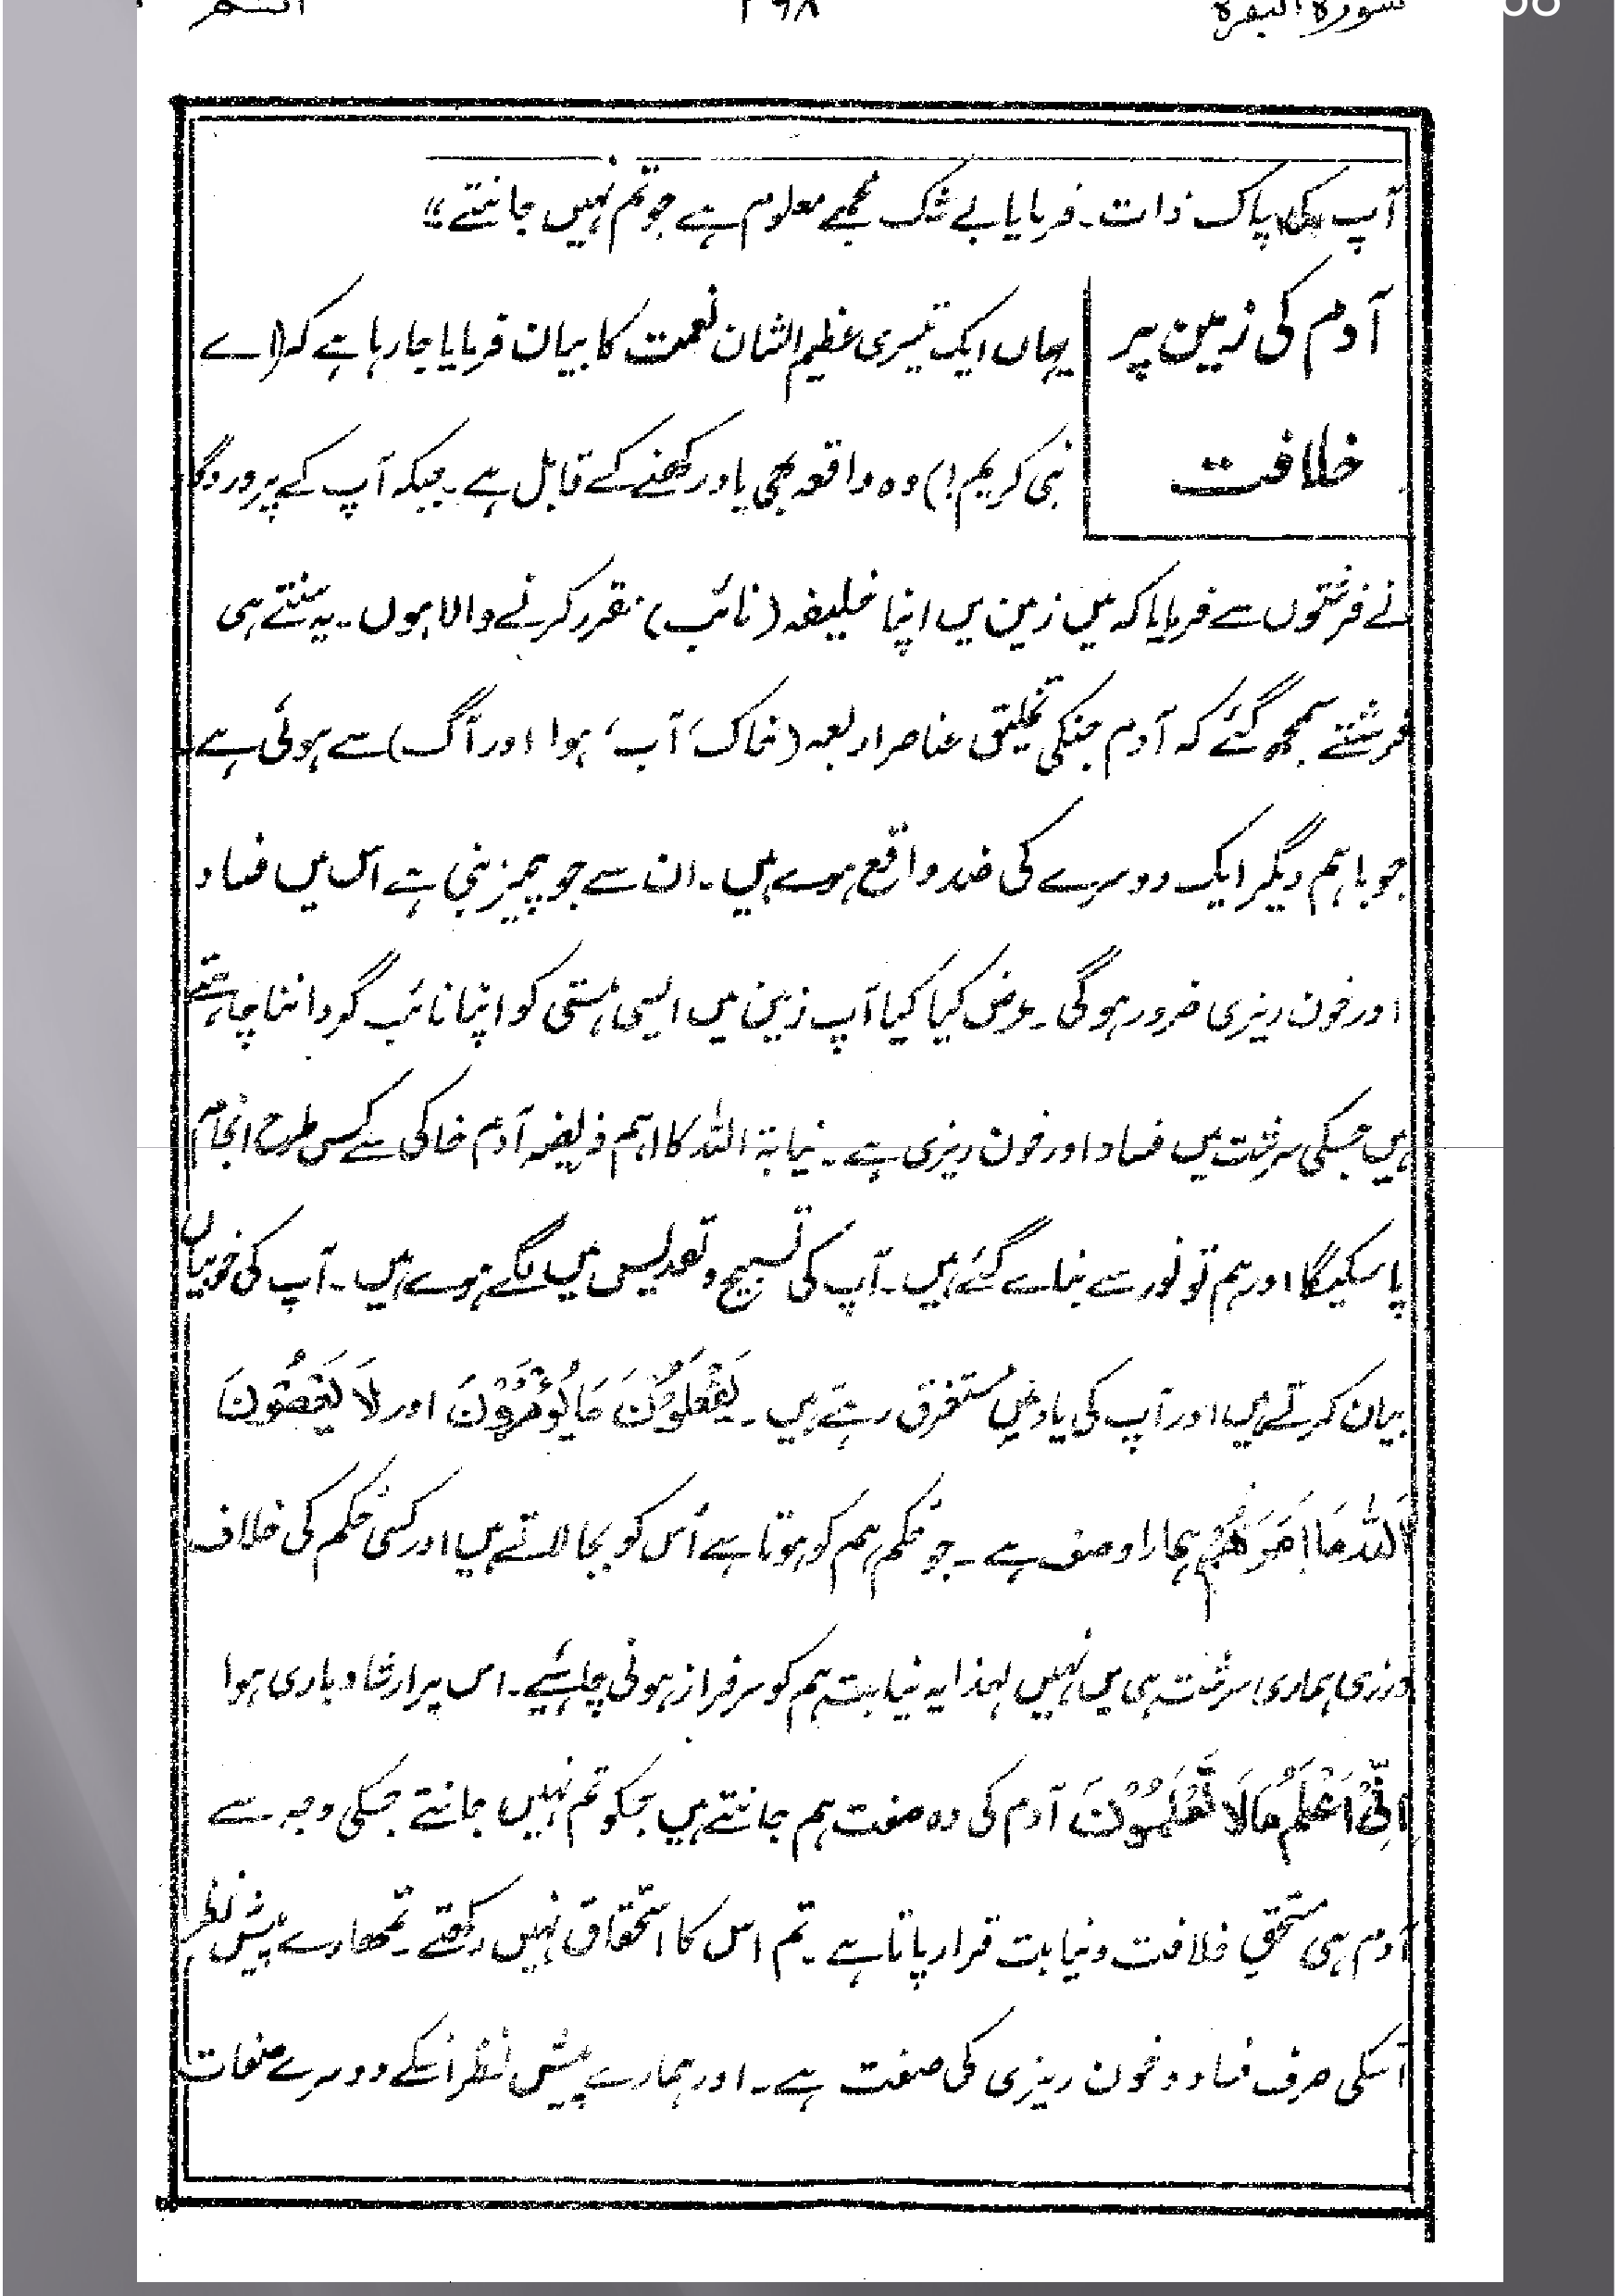 سورة البقرة ۲۶۸ الٓـمٓ
آپ کی پاک ذات۔ فرمایا بے شک مجھے معلوم ہے جو تم نہیں جانتے“
آدم کی زمین پر
خلافت
یہاں ایک تیسری عظیم الشان نعمت کا بیان فرمایا جا رہا ہے کہ (اے
نبی کریم!) وہ واقعہ بھی یاد رکھنے کے قابل ہے۔ جبکہ آپ کے پروردگا
نے فرشتوں سے فرمایا کہ میں زمین میں اپنا خلیفہ (نائب) مقرر کرنے والا ہوں۔ یہ سنتے ہی
فرشتے سمجھ گئے کہ آدم جنکی تخلیق عناصر اربعہ (خاک، آب، ہوا اور آگ) سے ہوئی ہے
جو باہم دیگر ایک دوسرے کی ضد واقع ہوے ہیں۔ ان سے جو چیز بنی ہے اس میں فساد
اور خون ریزی ضرور ہوگی۔ عرض کیا کیا آپ زمین میں ایسی ہستی کو اپنا نائب گرداننا چاہتے
ہیں جسکی سرشت میں فساد اور خون ریزی ہے۔ نیابۃ اللہ کا اہم فریضہ آدم خاکی سے کس طرح انجام
پا سکیگا اور ہم تو نور سے بنائے گئے ہیں۔ آپ کی تسبیح و تقدیس میں لگے ہوے ہیں۔ آپ کی خوبیاں
بیان کرتے ہیں اور آپ کی یاد میں مستغرق رہتے ہیں۔ یَفْعَلُوْنَ مَا یُؤْمَرُوْنَ اور لَا یَعْصُوْنَ
اللہَ مَا اَمَرَهُمْ ہمارا وصف ہے۔ جو حکم ہم کو ہوتا ہے اُس کو بجا لاتے ہیں اور کسی حکم کی خلاف
ورزی ہماری سرشت ہی میں نہیں لہذا یہ نیابت ہم کو سرفراز ہونی چاہئیے۔ اس پر ارشاد باری ہوا
اِنِّیْ اَعْلَمُ مَا لَا تَعْلَمُوْنَ آدم کی وہ صفت ہم جانتے ہیں جسکو تم نہیں جانتے جسکی وجہ سے
آدم ہی مستحق خلافت و نیابت قرار پاتا ہے۔ تم اس کا استحقاق نہیں رکھتے۔ تمھارے پیش نظر
اُسکی صرف فساد و خون ریزی کی صفت ہے۔ اور ہمارے پیش نظر اُسکے دوسرے صفات